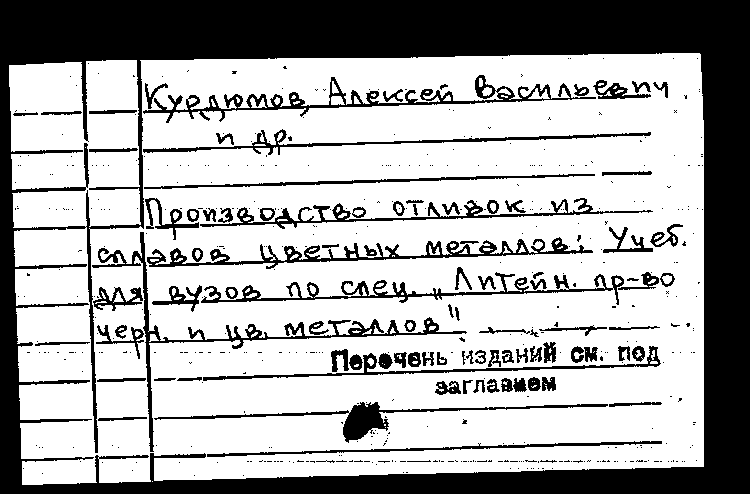 Курдюмов, Алексей Васильевич
и др.
Производство отливок из
сплавов цветных металлов: Учеб.
для вузов по спец. „Литейн. пр-во
черн. и цв. металлов"
Перечень изданий см. под
заглавием